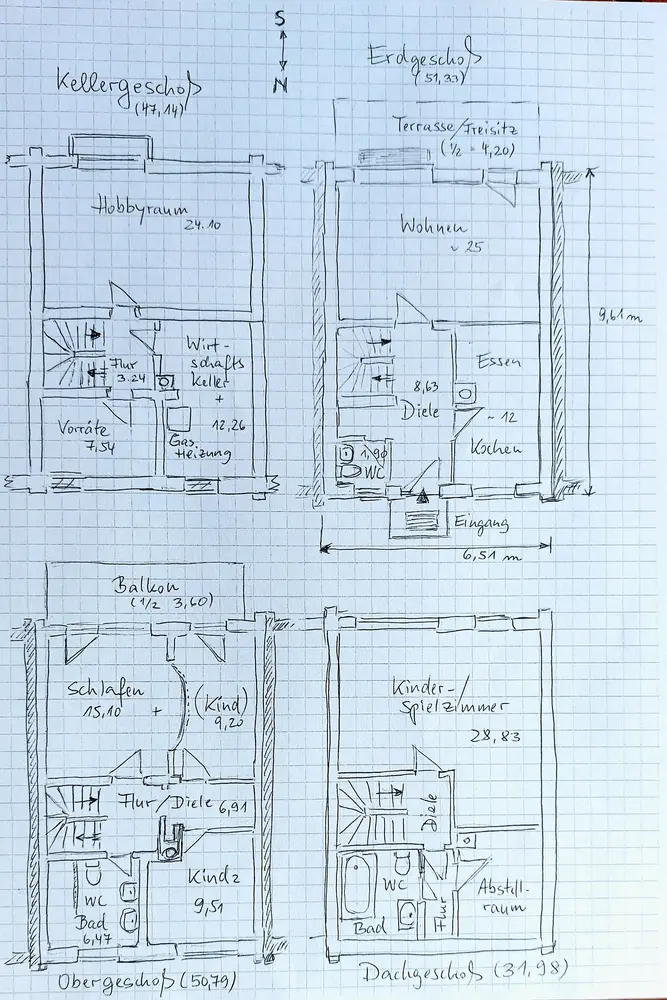 S
N
Kellergeschoß
(47,14)
Hobbyraum
24.10
Flur
3.24
Wirt-
schafts
Keller
+
12,26
Gas
Heizung
Vorräte
7,54
Erdgeschoß
(51,33)
Terrasse/Freisitz
(1/2 = 4,20)
Wohnen
~ 25
9,61 m
Essen
8,63
Diele
~ 12
Kochen
1,90
WC
Eingang
6,51 m
Balkon
(1/2 3,60)
Schlafen
15,10 +
(Kind)
9,20
Flur/Diele 6,91
WC
Bad
6,47
Kind 2
9,51
Obergeschoß (50,79)
Kinder-/
Spielzimmer
28,83
Diele
WC
Bad
Flur
Abstell-
raum
Dachgeschoß (31,98)